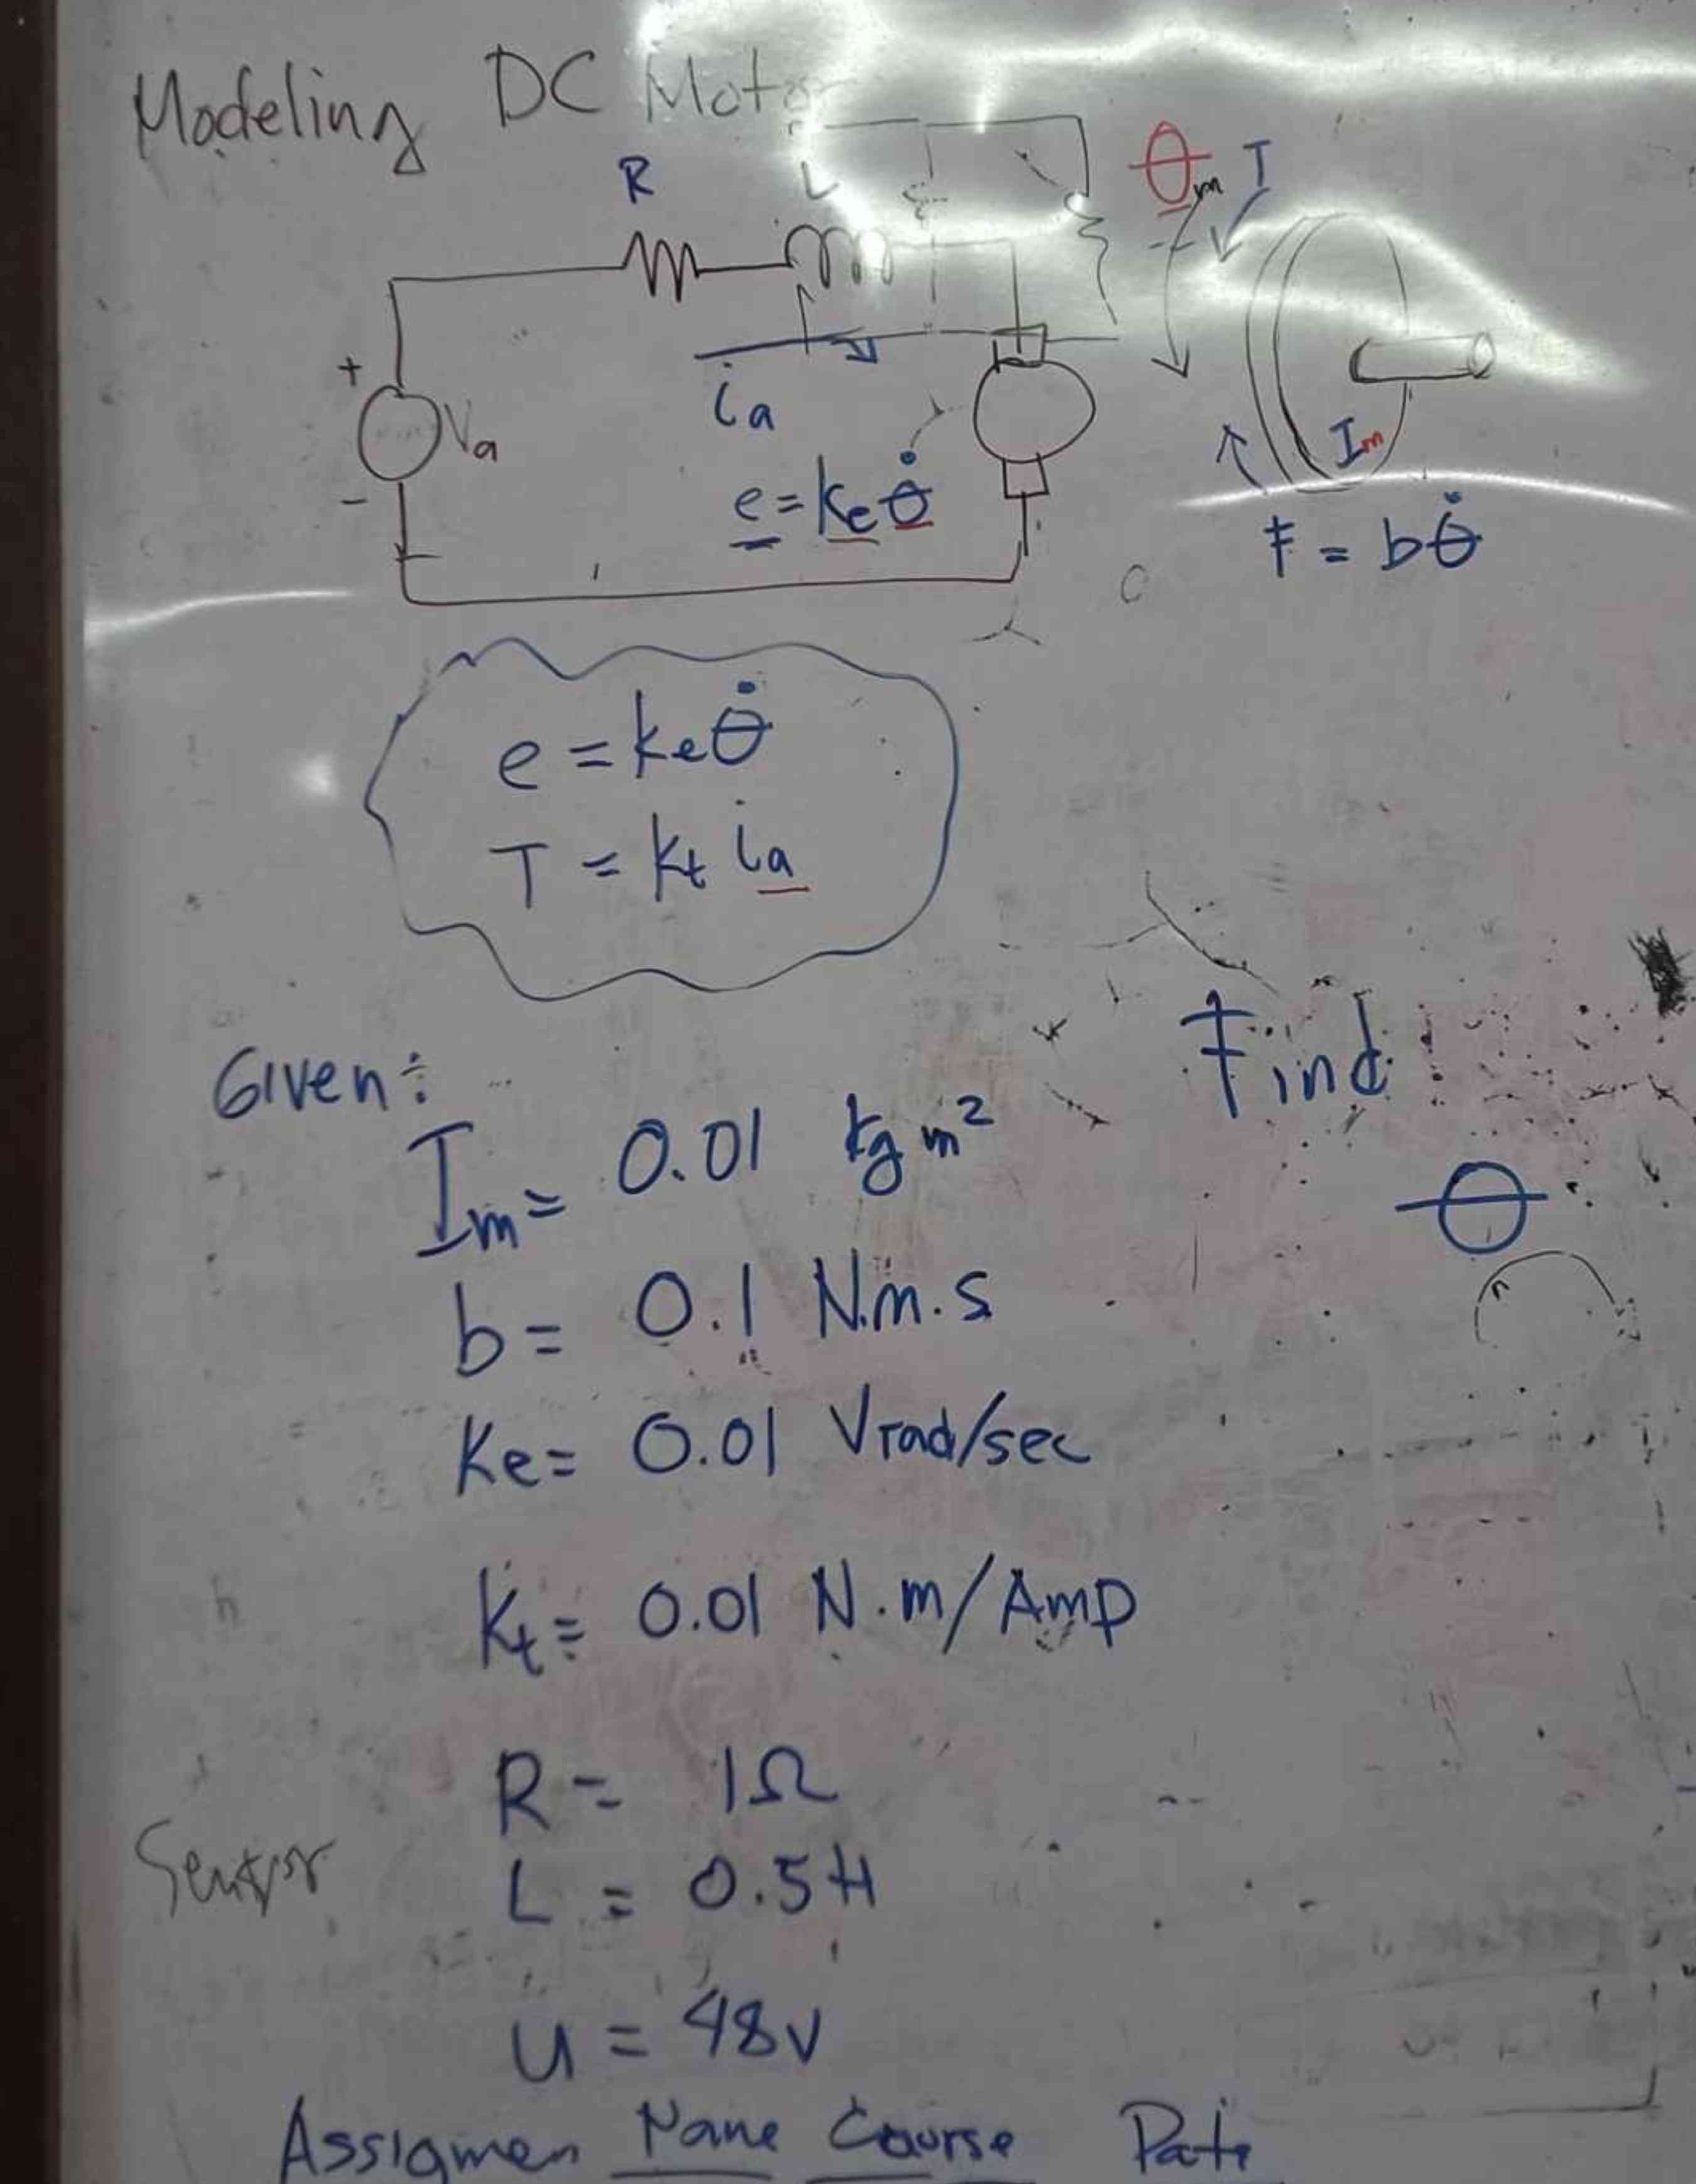 Modeling DC Motor
R L
θm T
+
Va
-
ia
e = keθ̇
Im
F = bθ̇
e = keθ̇
T = kt ia
Given:
Find
Im = 0.01 kg m²
θ
b = 0.1 N.m.s
Ke = 0.01 Vrad/sec
Kt = 0.01 N.m/Amp
R = 1Ω
Sensor
L = 0.5H
U = 48v
Assigmen Name Course Date